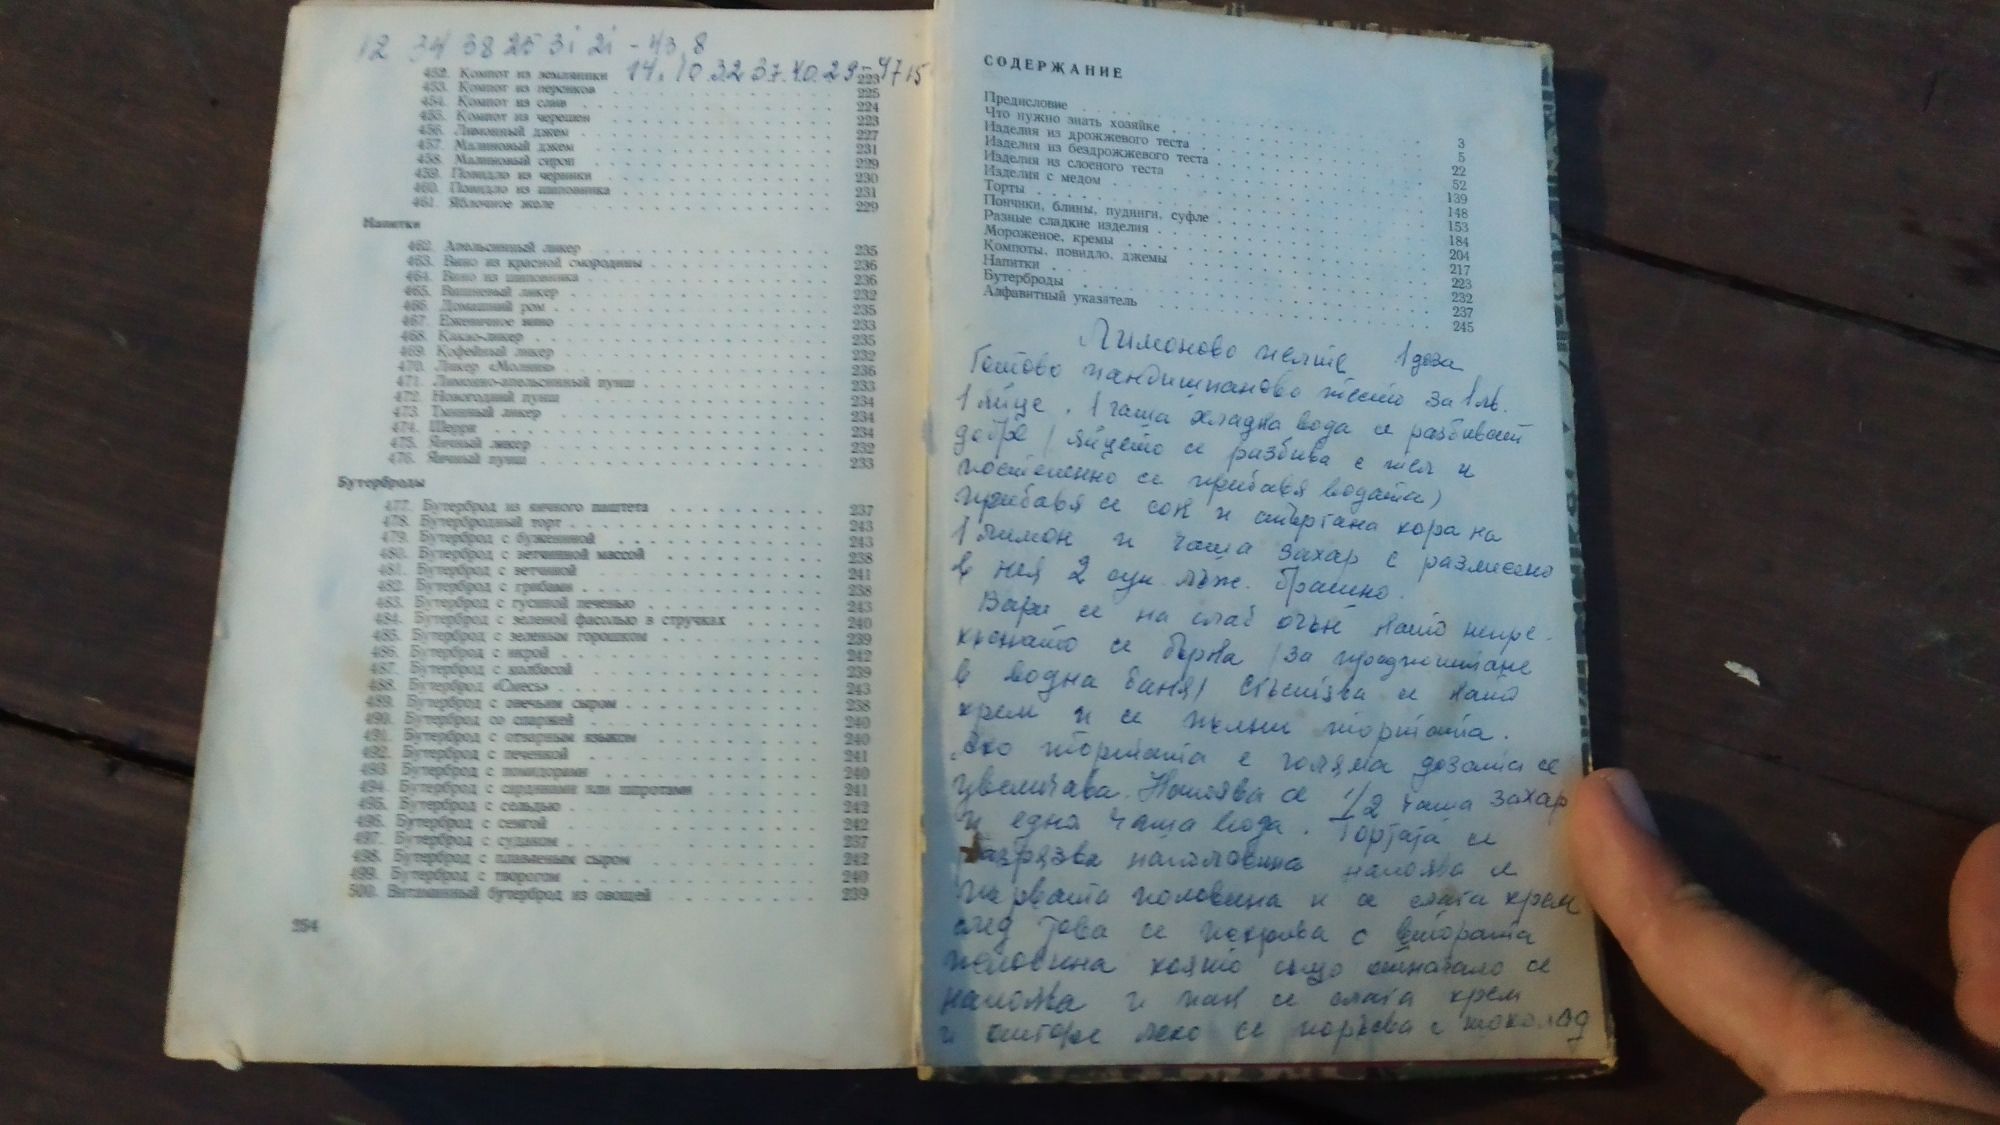 12 34 38 25 31 21 - 43 8
14. 10. 32 37. 40. 29 - 47 15
452. Компот из земляники 223
453. Компот из персиков 225
454. Компот из слив 224
455. Компот из черешен 223
456. Лимонный джем 227
457. Малиновый джем 231
458. Малиновый сироп 229
459. Повидло из черники 230
460. Повидло из шиповника 231
461. Яблочное желе 229
Напитки
462. Апельсинный ликер 235
463. Вино из красной смородины 236
464. Вино из шиповника 236
465. Вишневый ликер 232
466. Домашний ром 235
467. Ежевичное вино 233
468. Какао-ликер 235
469. Кофейный ликер 232
470. Ликер «Молния» 236
471. Лимонно-апельсинный пунш 233
472. Новогодний пунш 234
473. Тминный ликер 234
474. Шерри 234
475. Яичный ликер 232
476. Яичный пунш 233
Бутерброды
477. Бутерброд из яичного паштета 237
478. Бутербродный торт 243
479. Бутерброд с бужениной 243
480. Бутерброд с ветчинной массой 238
481. Бутерброд с ветчиной 241
482. Бутерброд с грибами 238
483. Бутерброд с гусиной печенью 243
484. Бутерброд с зеленой фасолью в стручках 240
485. Бутерброд с зеленым горошком 239
486. Бутерброд с икрой 242
487. Бутерброд с колбасой 239
488. Бутерброд «Смесь» 243
489. Бутерброд с овечьим сыром 238
490. Бутерброд со спаржей 240
491. Бутерброд с отварным языком 240
492. Бутерброд с печенкой 241
493. Бутерброд с помидорами 240
494. Бутерброд с сардинами или шпротами 241
495. Бутерброд с сельдью 242
496. Бутерброд с семгой 242
497. Бутерброд с судаком 237
498. Бутерброд с плавленым сыром 242
499. Бутерброд с творогом 240
500. Витаминный бутерброд из овощей 239
254
СОДЕРЖАНИЕ
Предисловие 3
Что нужно знать хозяйке 5
Изделия из дрожжевого теста 22
Изделия из бездрожжевого теста 52
Изделия из слоеного теста 139
Изделия с медом 148
Торты 153
Пончики, блины, пудинги, суфле 184
Разные сладкие изделия 204
Мороженое, кремы 217
Компоты, повидло, джемы 223
Напитки 232
Бутерброды 237
Алфавитный указатель 245
Лимоново желте 1 доза
Готово пандишпаново тесто за 1 лв.
1 яйце, 1 чаша хладна вода се разбиват
добре / яйцето се разбива с тел и
постепенно се прибавя водата)
прибавя се сок и стъргана кора на
1 лимон и чаша захар с размесено
в нея 2 суп. лъж. брашно.
Вари се на слаб огън като непре-
къснато се бърка /за предпочитане
в водна баня/ Сгъстява се като
крем и се пълни тортата.
Ако тортата е голяма дозата се
увеличава. Напоява се 1/2 чаша захар
и една чаша вода. Тортата се
разрязва наполовина напоява се
първата половина и се слага крем
след това се покрива с втората
половина която също отначало се
напоява и пак се слага крем
и отгоре леко се поръсва с шоколад